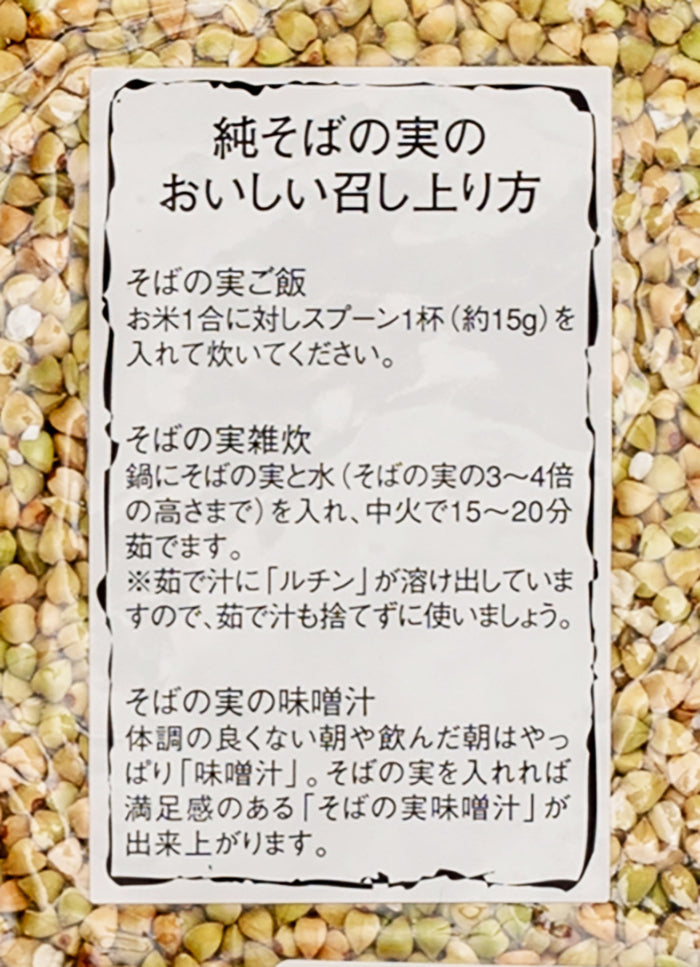 純そばの実の
おいしい召し上り方
そばの実ご飯
お米1合に対しスプーン1杯(約15g)を
入れて炊いてください。
そばの実雑炊
鍋にそばの実と水(そばの実の3〜4倍
の高さまで)を入れ、中火で15〜20分
茹でます。
※茹で汁に「ルチン」が溶け出していま
すので、茹で汁も捨てずに使いましょう。
そばの実の味噌汁
体調の良くない朝や飲んだ朝はやっ
ぱり「味噌汁」。そばの実を入れれば
満足感のある「そばの実味噌汁」が
出来上がります。